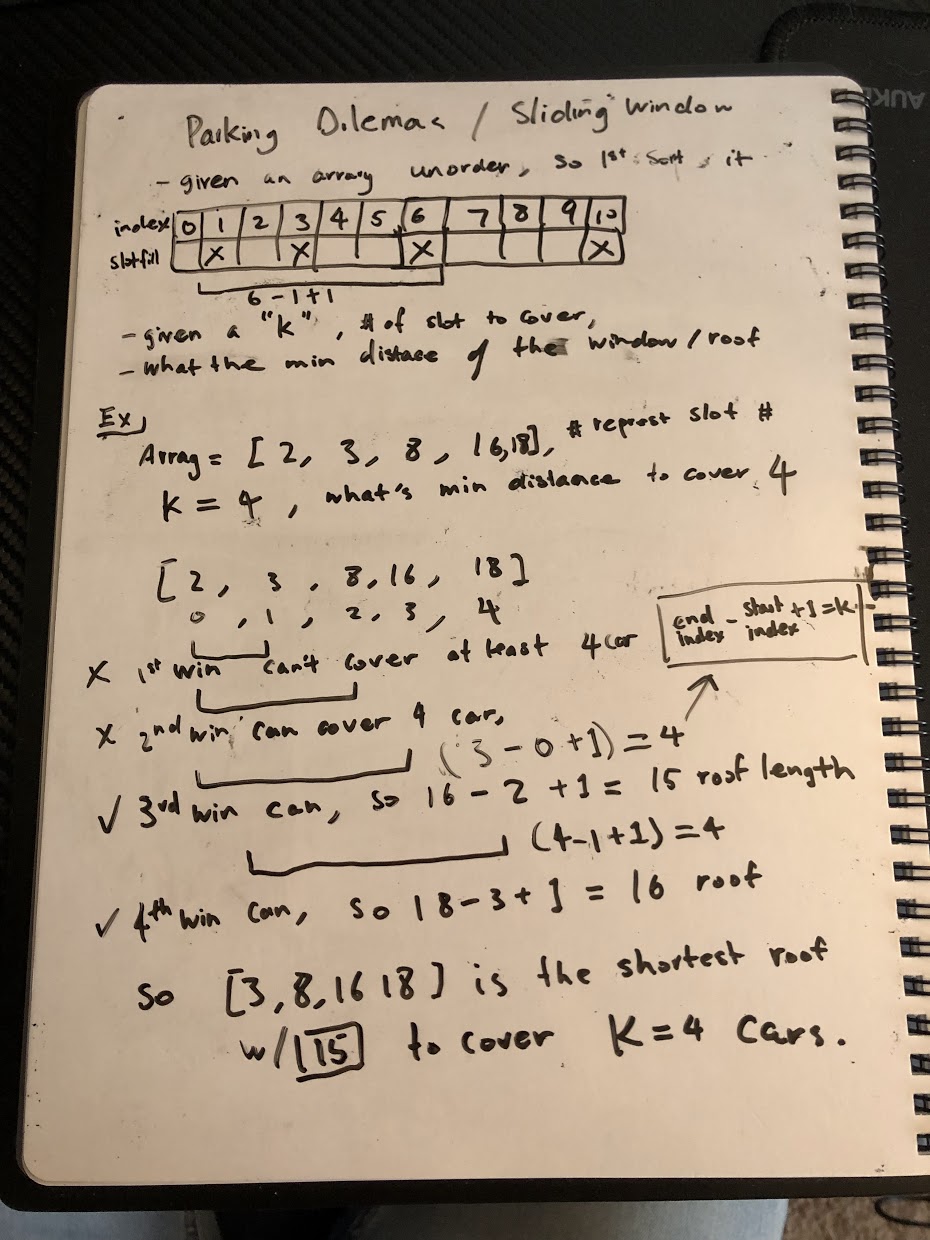 AUK
Parking Dilemas / Sliding Window
- given an array unorder, so 1st sort it
index 0 1 2 3 4 5 6 7 8 9 10
slotfill X X X X
6-1+1
- given a "k", # of slot to cover,
- what the min distace of the window/roof
Ex
Array = [2, 3, 8, 16,18], # represt slot #
K = 4, what's min distance to cover 4
[2, 3, 8,16, 18]
0, 1, 2, 3, 4
end index - start index +1=k
X 1st win can't cover at least 4 car
X 2nd win can cover 4 car,
(3-0+1)=4
✓ 3rd win can, so 16-2+1= 15 roof length
(4-1+1)=4
✓ 4th win can, so 18-3+1 = 16 roof
So [3,8,16 18] is the shortest roof
w/ 15 to cover K=4 cars.